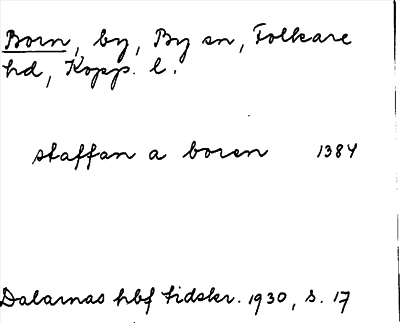 Born, by, By sn, Folkare
hd, Kopp. l.
staffan a boren 1384
Dalarnas hbf tidskr. 1930, s. 17